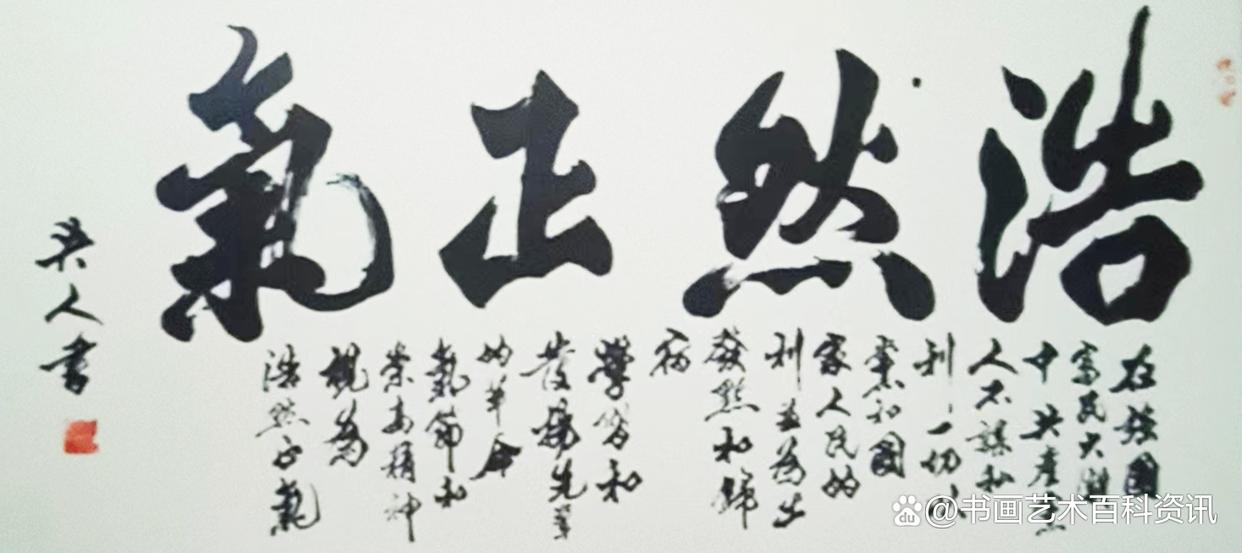 浩然正氣
在强國
富民大潮
中共産黨
人不謀私
利一切以
黨和國
家人民的
利益為出
發點和歸
宿
學習和
發揚先輩
的革命
氣節和
崇高精神
視為
浩然正氣
人書
du @书画艺术百科资讯